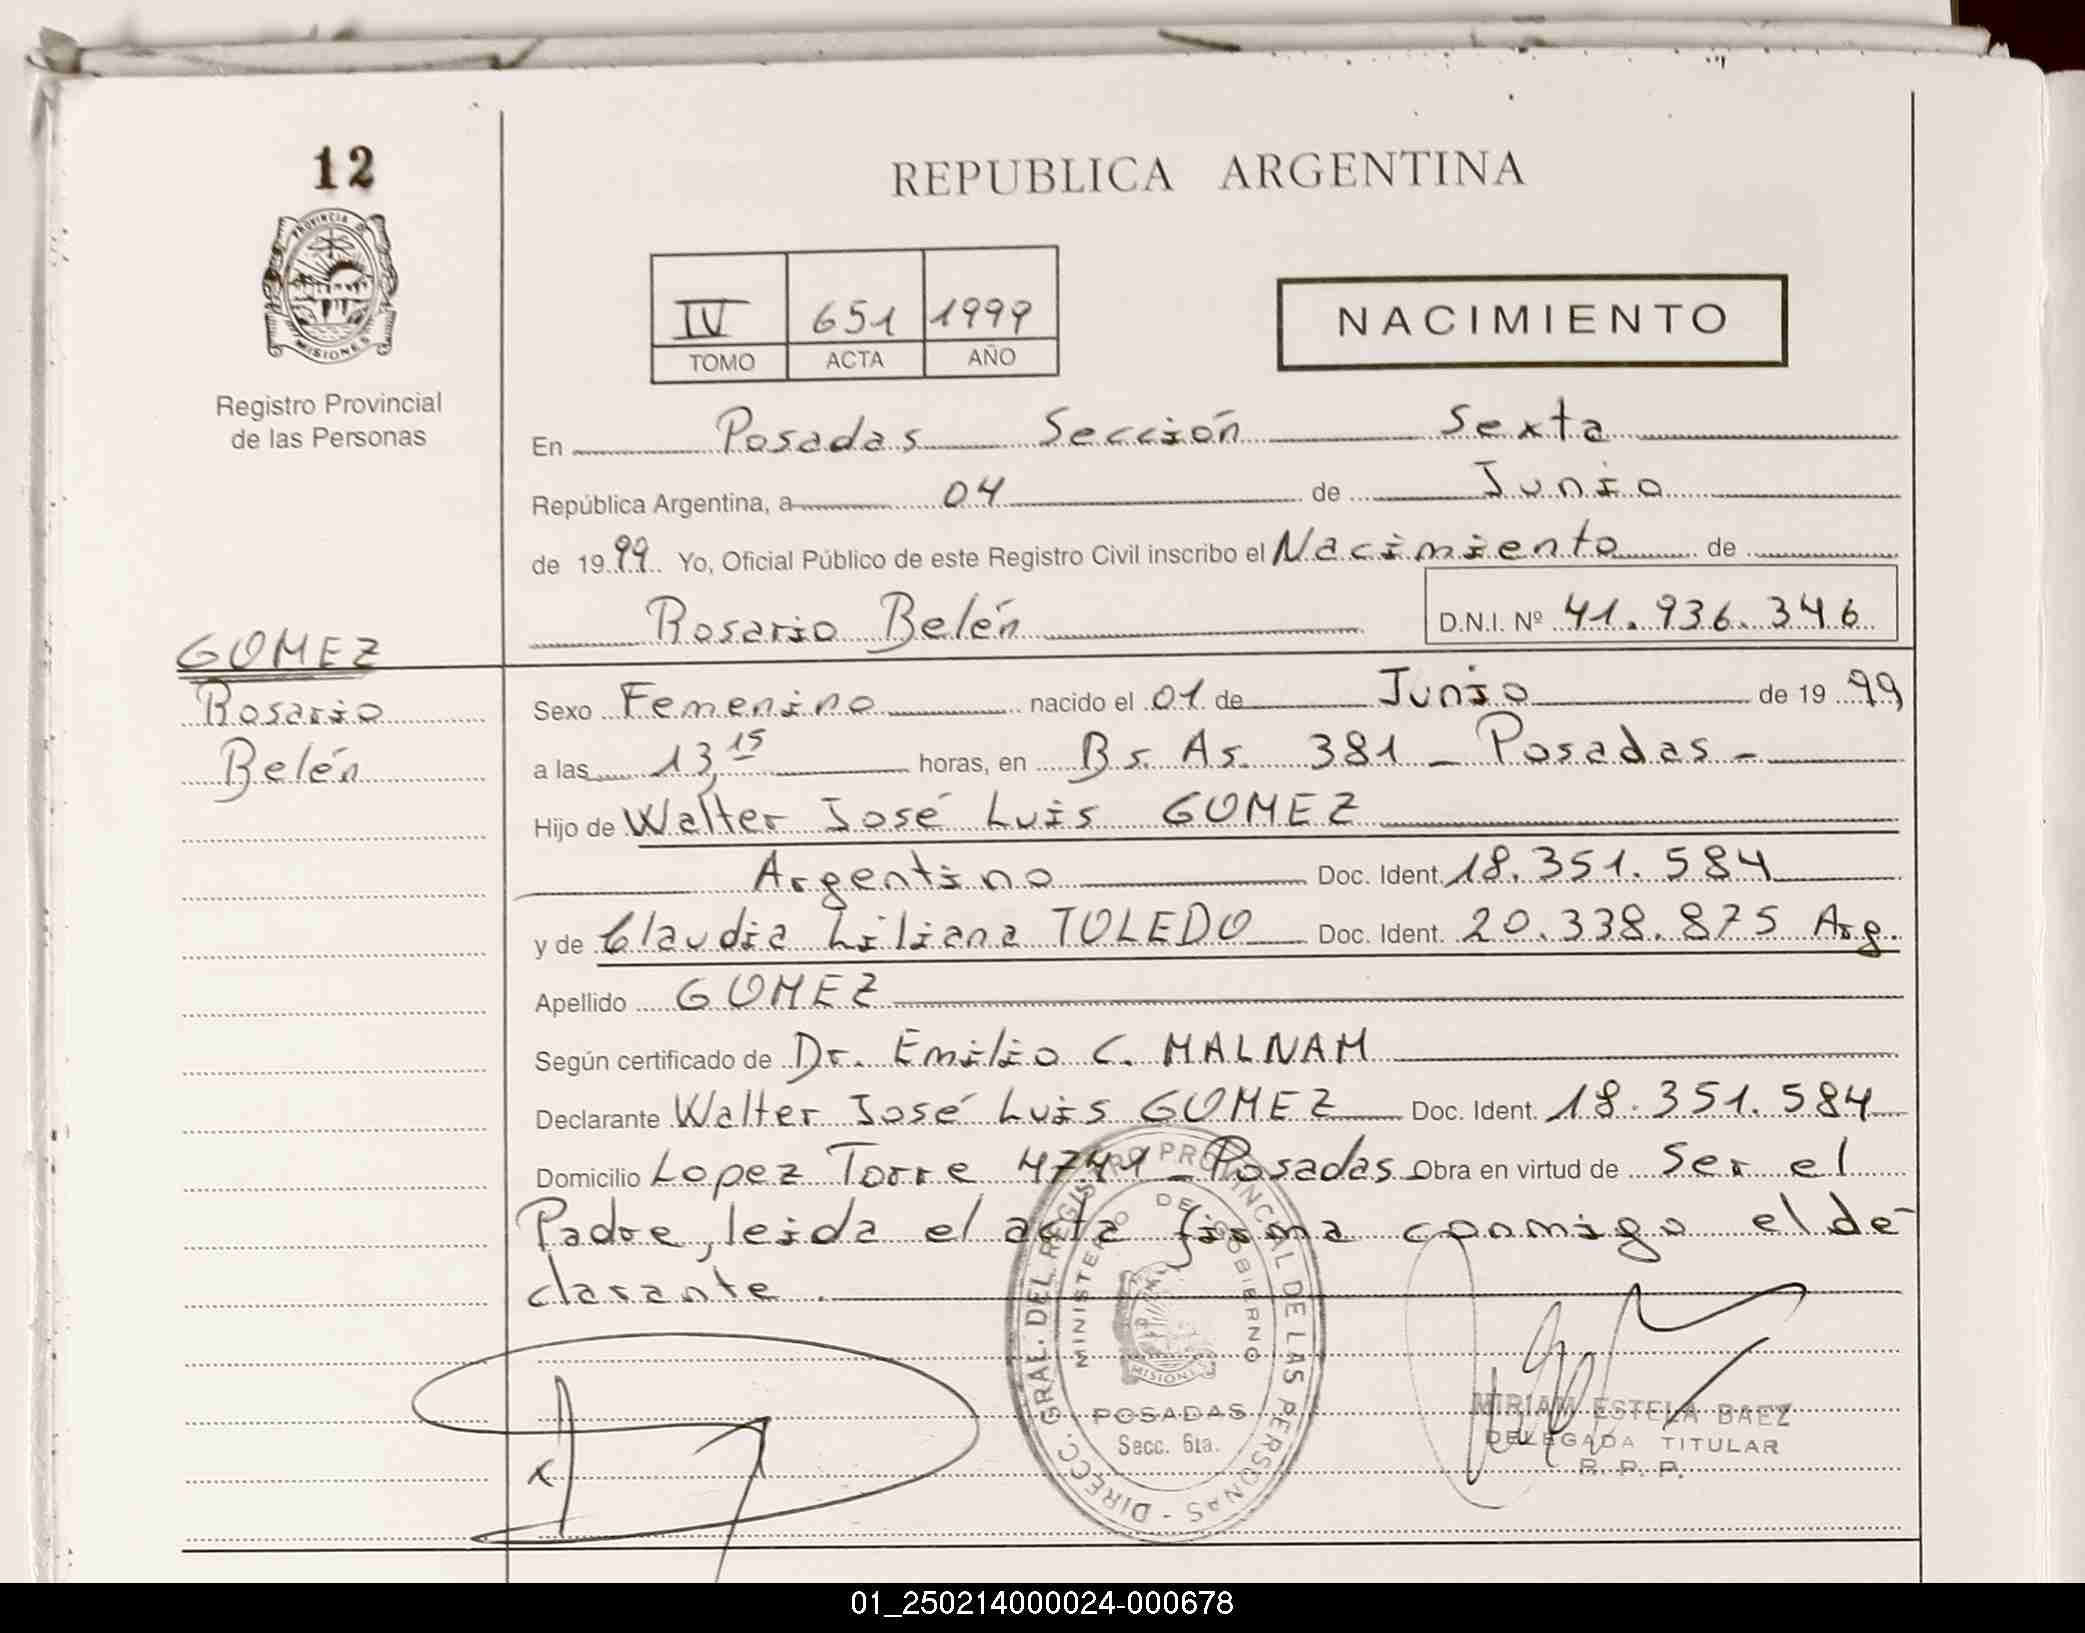 12
REPUBLICA ARGENTINA
PROVINCIA DE
MISIONES
Registro Provincial
de las Personas
IV 651 1999
TOMO ACTA AÑO
NACIMIENTO
En Posadas Sección Sexta
República Argentina, a 04 de Junio
de 1999 Yo, Oficial Público de este Registro Civil inscribo el Nacimiento de
Rosario Belén D.N.I. Nº 41.936.346
GOMEZ
Rosario
Belén
Sexo Femenino nacido el 01 de Junio de 1999
a las 13,15 horas, en Bs. As. 381 - Posadas -
Hijo de Walter José Luis GOMEZ
Argentino Doc. Ident. 18.351.584
y de Claudia Liliana TOLEDO Doc. Ident. 20.338.875 Arg.
Apellido GOMEZ
Según certificado de Dr. Emilio C. MALNAM
Declarante Walter José Luis GOMEZ Doc. Ident. 18.351.584
Domicilio Lopez Torre 4741 - Posadas Obra en virtud de Ser el
Padre, leida el acta firma conmigo el de-
clarante.
DIRECC. GRAL. DEL REGISTRO PROVINCIAL DE LAS PERSONAS -
MINISTERIO DE GOBIERNO
MISIONES
POSADAS
Secc. 6ta.
x
MIRIAM ESTELA BAEZ
DELEGADA TITULAR
R. P. P.
01_250214000024-000678